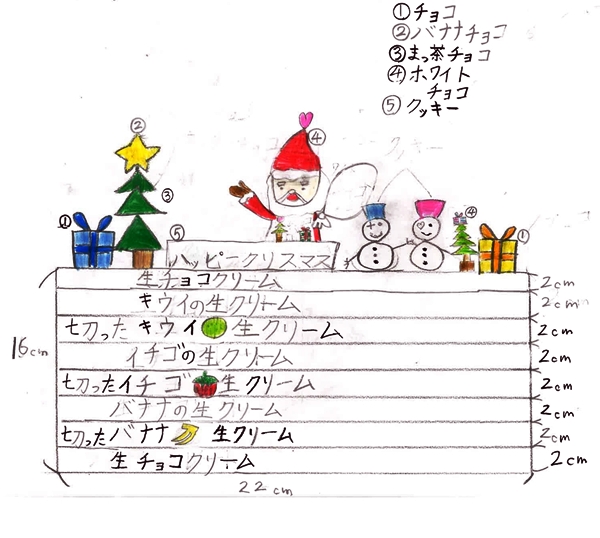 ①チョコ
②バナナチョコ
③まっ茶チョコ
④ホワイト
チョコ
⑤クッキー
②
④
クッキー
③
①
⑤
④
①
ハッピークリスマス
生チョコクリーム
2cm
キウイの生クリーム
2cm
切ったキウイ生クリーム
2cm
16cm
イチゴの生クリーム
2cm
切ったイチゴ生クリーム
2cm
バナナの生クリーム
2cm
切ったバナナ生クリーム
2cm
生チョコクリーム
2cm
22cm